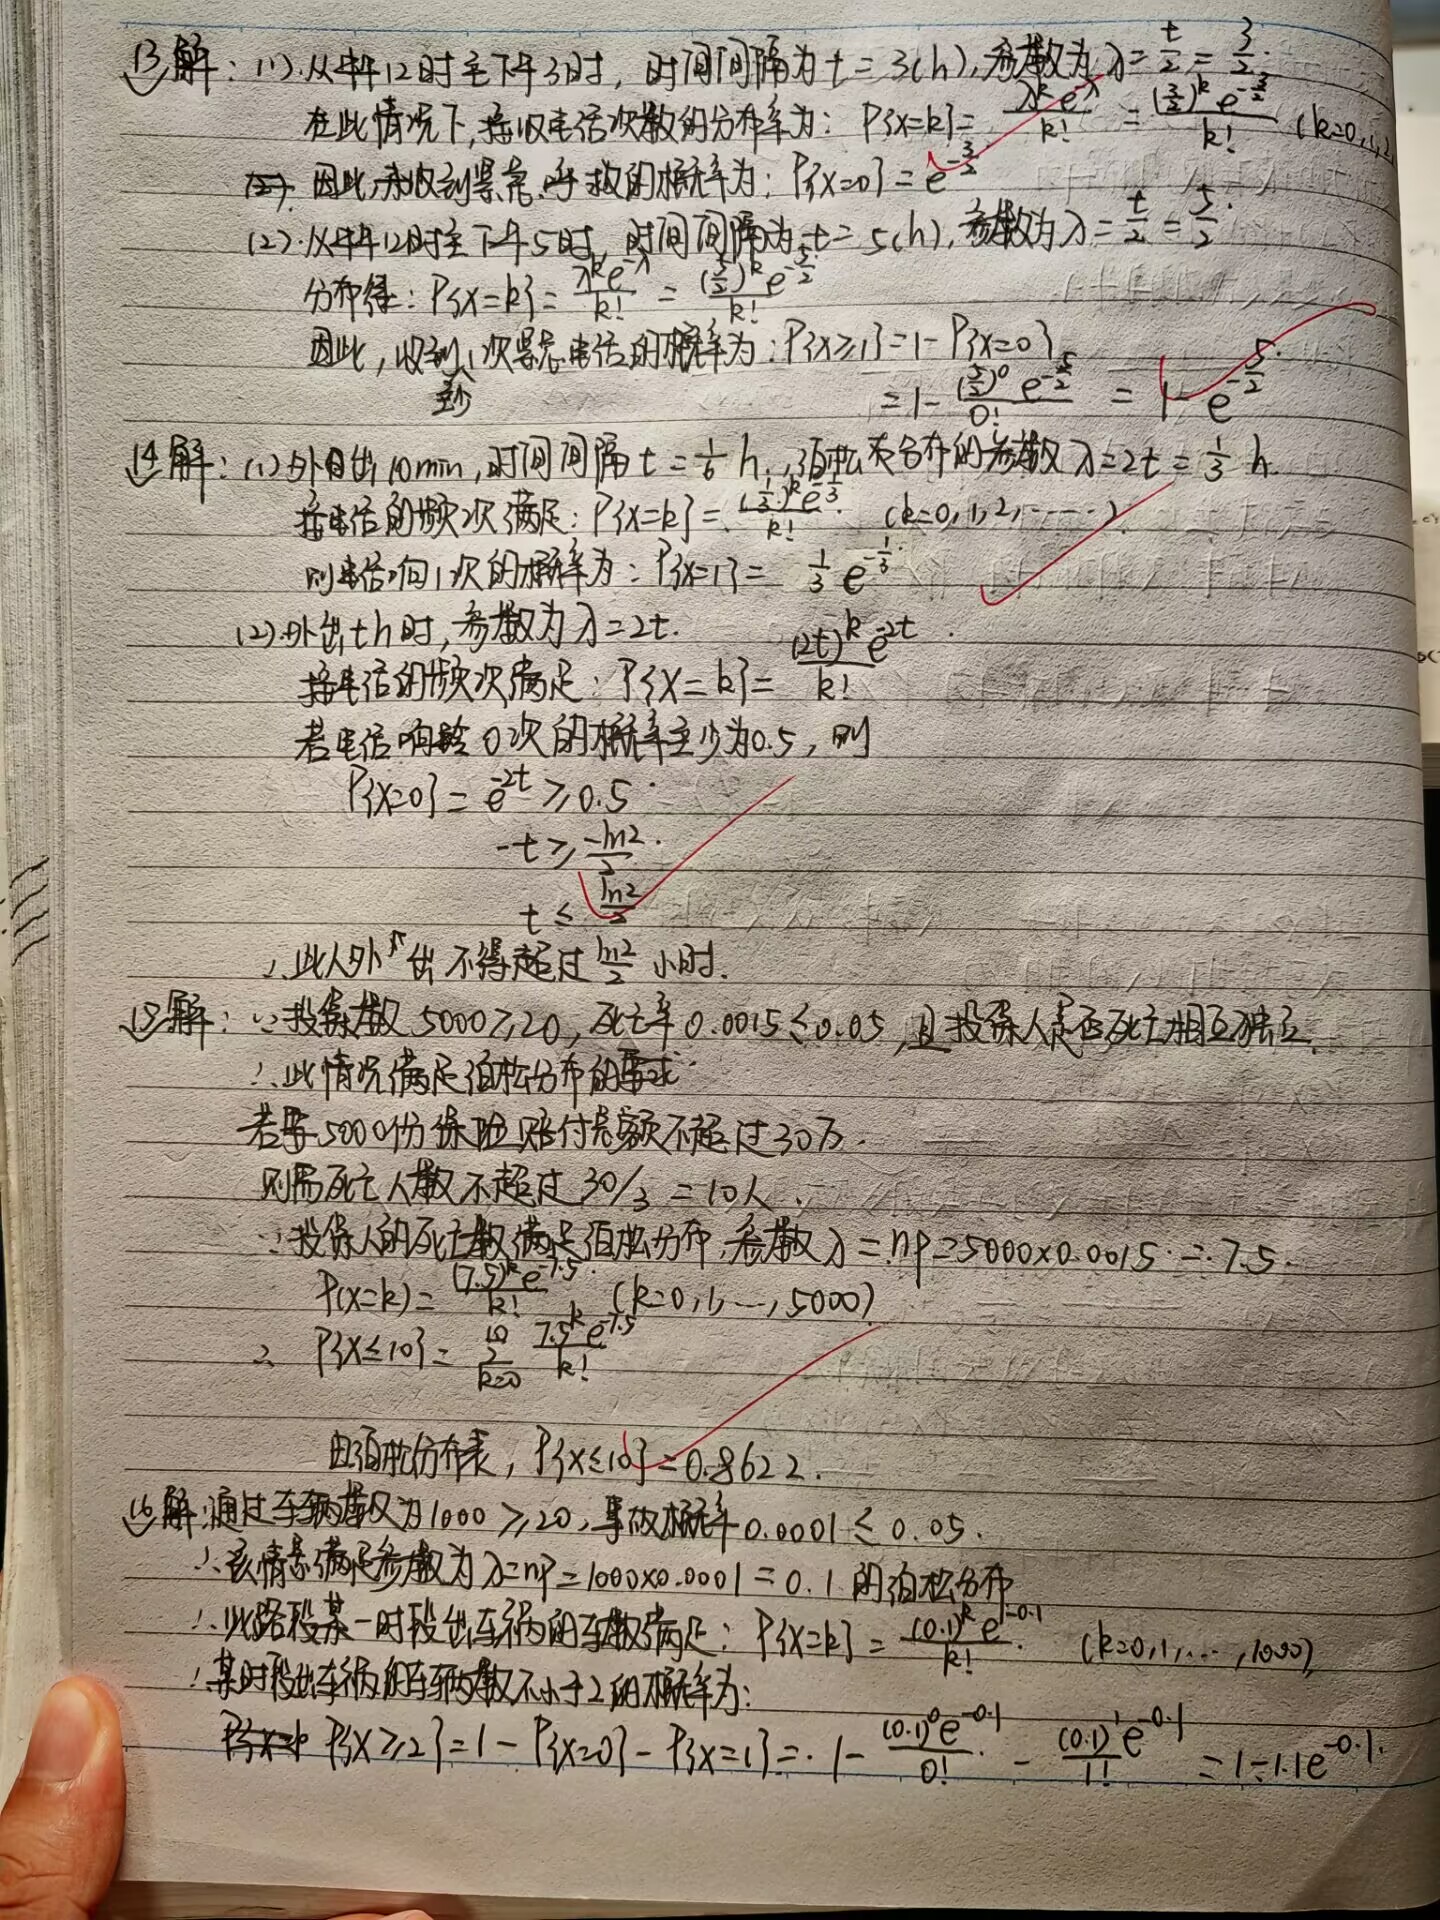 13 解: (1).从中午12时至下午3时, 时间间隔为 t = 3(h), 参数为 λ = t/2 = 3/2.
在此情况下, 接收电话次数的分布率为: P{X=k} = λ^k e^-λ / k! = (3/2)^k e^-3/2 / k! (k=0,1,2
因此, 未收到紧急呼救的概率为: P{X=0} = e^-3/2
(2).从中午12时至下午5时, 时间间隔为 t = 5(h), 参数为 λ = t/2 = 5/2.
分布律: P{X=k} = λ^k e^-λ / k! = (5/2)^k e^-5/2 / k!
因此, 收到至少1次紧急电话的概率为: P{X≥1} = 1 - P{X=0}
= 1 - (5/2)^0 e^-5/2 / 0! = 1 - e^-5/2.
14 解: (1) 外出 10min, 时间间隔 t = 1/6 h., 泊松分布的参数 λ = 2t = 1/3 h.
接电话的频次满足: P{X=k} = (1/3)^k e^-1/3 / k! (k=0,1,2,……)
则电话响1次的概率为: P{X=1} = 1/3 e^-1/3.
(2).外出 t h 时, 参数为 λ=2t.
接电话的频次满足: P{X=k} = (2t)^k e^-2t / k!
若电话响铃 0次的概率至少为0.5, 则
P{X=0} = e^-2t ≥ 0.5
-t ≥ -ln2/2.
t ≤ ln2/2
∴此人外出不得超过 ln2/2 小时.
15 解: ∵投保数 5000≥20, 死亡率 0.0015≤0.05, 且投保人是否死亡相互独立.
∴此情况满足泊松分布的要求
若要5000份保险赔付总额不超过30万.
则需死亡人数不超过 30/3 = 10人.
∵投保人的死亡数满足泊松分布, 参数 λ = np = 5000×0.0015 = 7.5.
P(X=k) = (7.5)^k e^-7.5 / k! (k=0,1,…,5000)
∴ P{X≤10} = Σ_{k=0}^{10} 7.5^k e^-7.5 / k!
由泊松分布表, P{X≤10} = 0.8622.
16 解: 通过车辆数为1000≥20, 事故概率 0.0001 ≤ 0.05.
∴该情景满足参数为 λ=np=1000×0.0001=0.1 的泊松分布
∴此路段某一时段出车祸的车数满足: P{X=k} = (0.1)^k e^-0.1 / k! (k=0,1,…,1000)
∴某时段出车祸的车辆数不小于2的概率为:
P{X≥2} = 1 - P{X=0} - P{X=1} = 1 - (0.1)^0 e^-0.1 / 0! - (0.1)^1 e^-0.1 / 1! = 1-1.1e^-0.1.